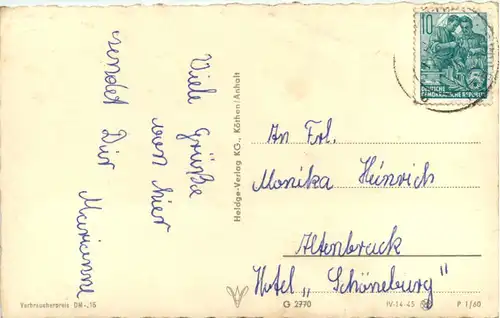 Viele Grüße
von hier
sendet Dir
Marianne
Heldge-Verlag KG., Köthen/Anhalt
10
DEUTSCHE
DEMOKRATISCHE REPUBLIK
An Frl.
Monika Heinrich
Altenbrack
Hotel „Schöneburg"
Verbraucherpreis DM -,15
G 2770
IV-14-45
P 1/60